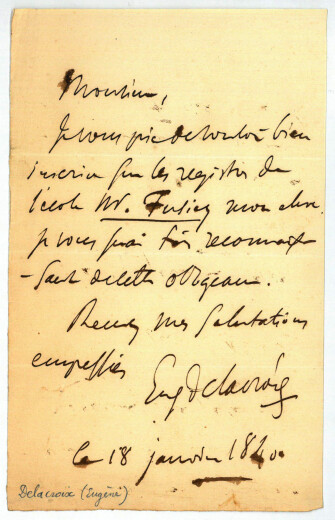 Monsieur,
Je vous prie de vouloir bien
inscrire sur les registres de
l'école Mr. mon élève
je vous serai très reconnais
-sant de cette obligeance.
Recevez mes salutations
empressées
Eug Delacroix
Le 18 janvier 1840.
Delacroix (Eugène)